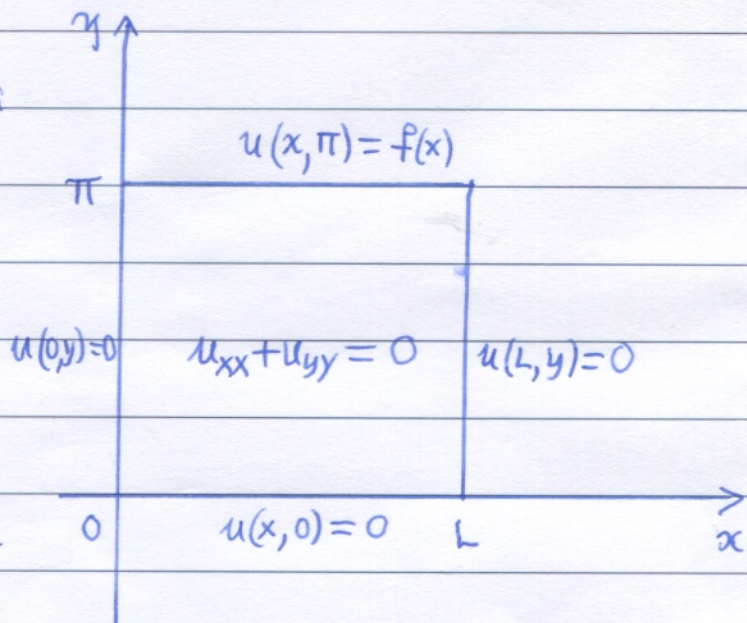 y
u(x,π) = f(x)
π
u(0,y)=0 u_xx + u_yy = 0 u(L,y)=0
0 u(x,0) = 0 L x